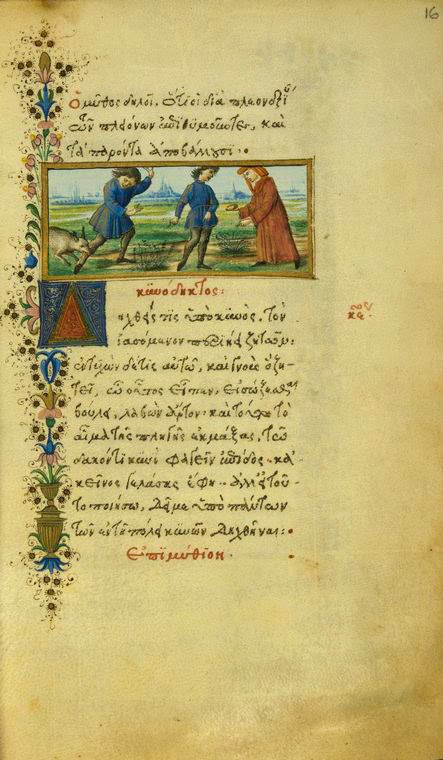 Ὁ μῦθος δηλοῖ, ὅτι οἱ διὰ πλεονεξίαν
τῶν πλειόνων ἐπιθυμοῦντες, καὶ
τὰ παρόντα ἀποβάλλουσι.
16
κυνόδηκτος:
Δηχθείς τις ὑπὸ κυνὸς, τὸν
ἰασόμενον περιῄει ζητῶν.
ἐντυχὼν δέ τις αὐτῷ, καὶ γνοὺς ὃ ζη
τεῖ, ὦ οὗτος εἶπεν, εἰ σώζεσθαι
βούλει, λαβὼν ἄρτον, καὶ τούτῳ τὸ
αἷμα τῆς πληγῆς ἐκμάξας, τῷ
δακόντι κυνὶ φαγεῖν ἐπίδος. κἀ
κεῖνος γελάσας ἔφη. ἀλλ' εἰ τοῦ
το ποιήσω, δεῖ με ὑπὸ πάντων
τῶν ἐν τῇ πόλει κυνῶν δηχθῆναι:
Ἐπιμύθιον.